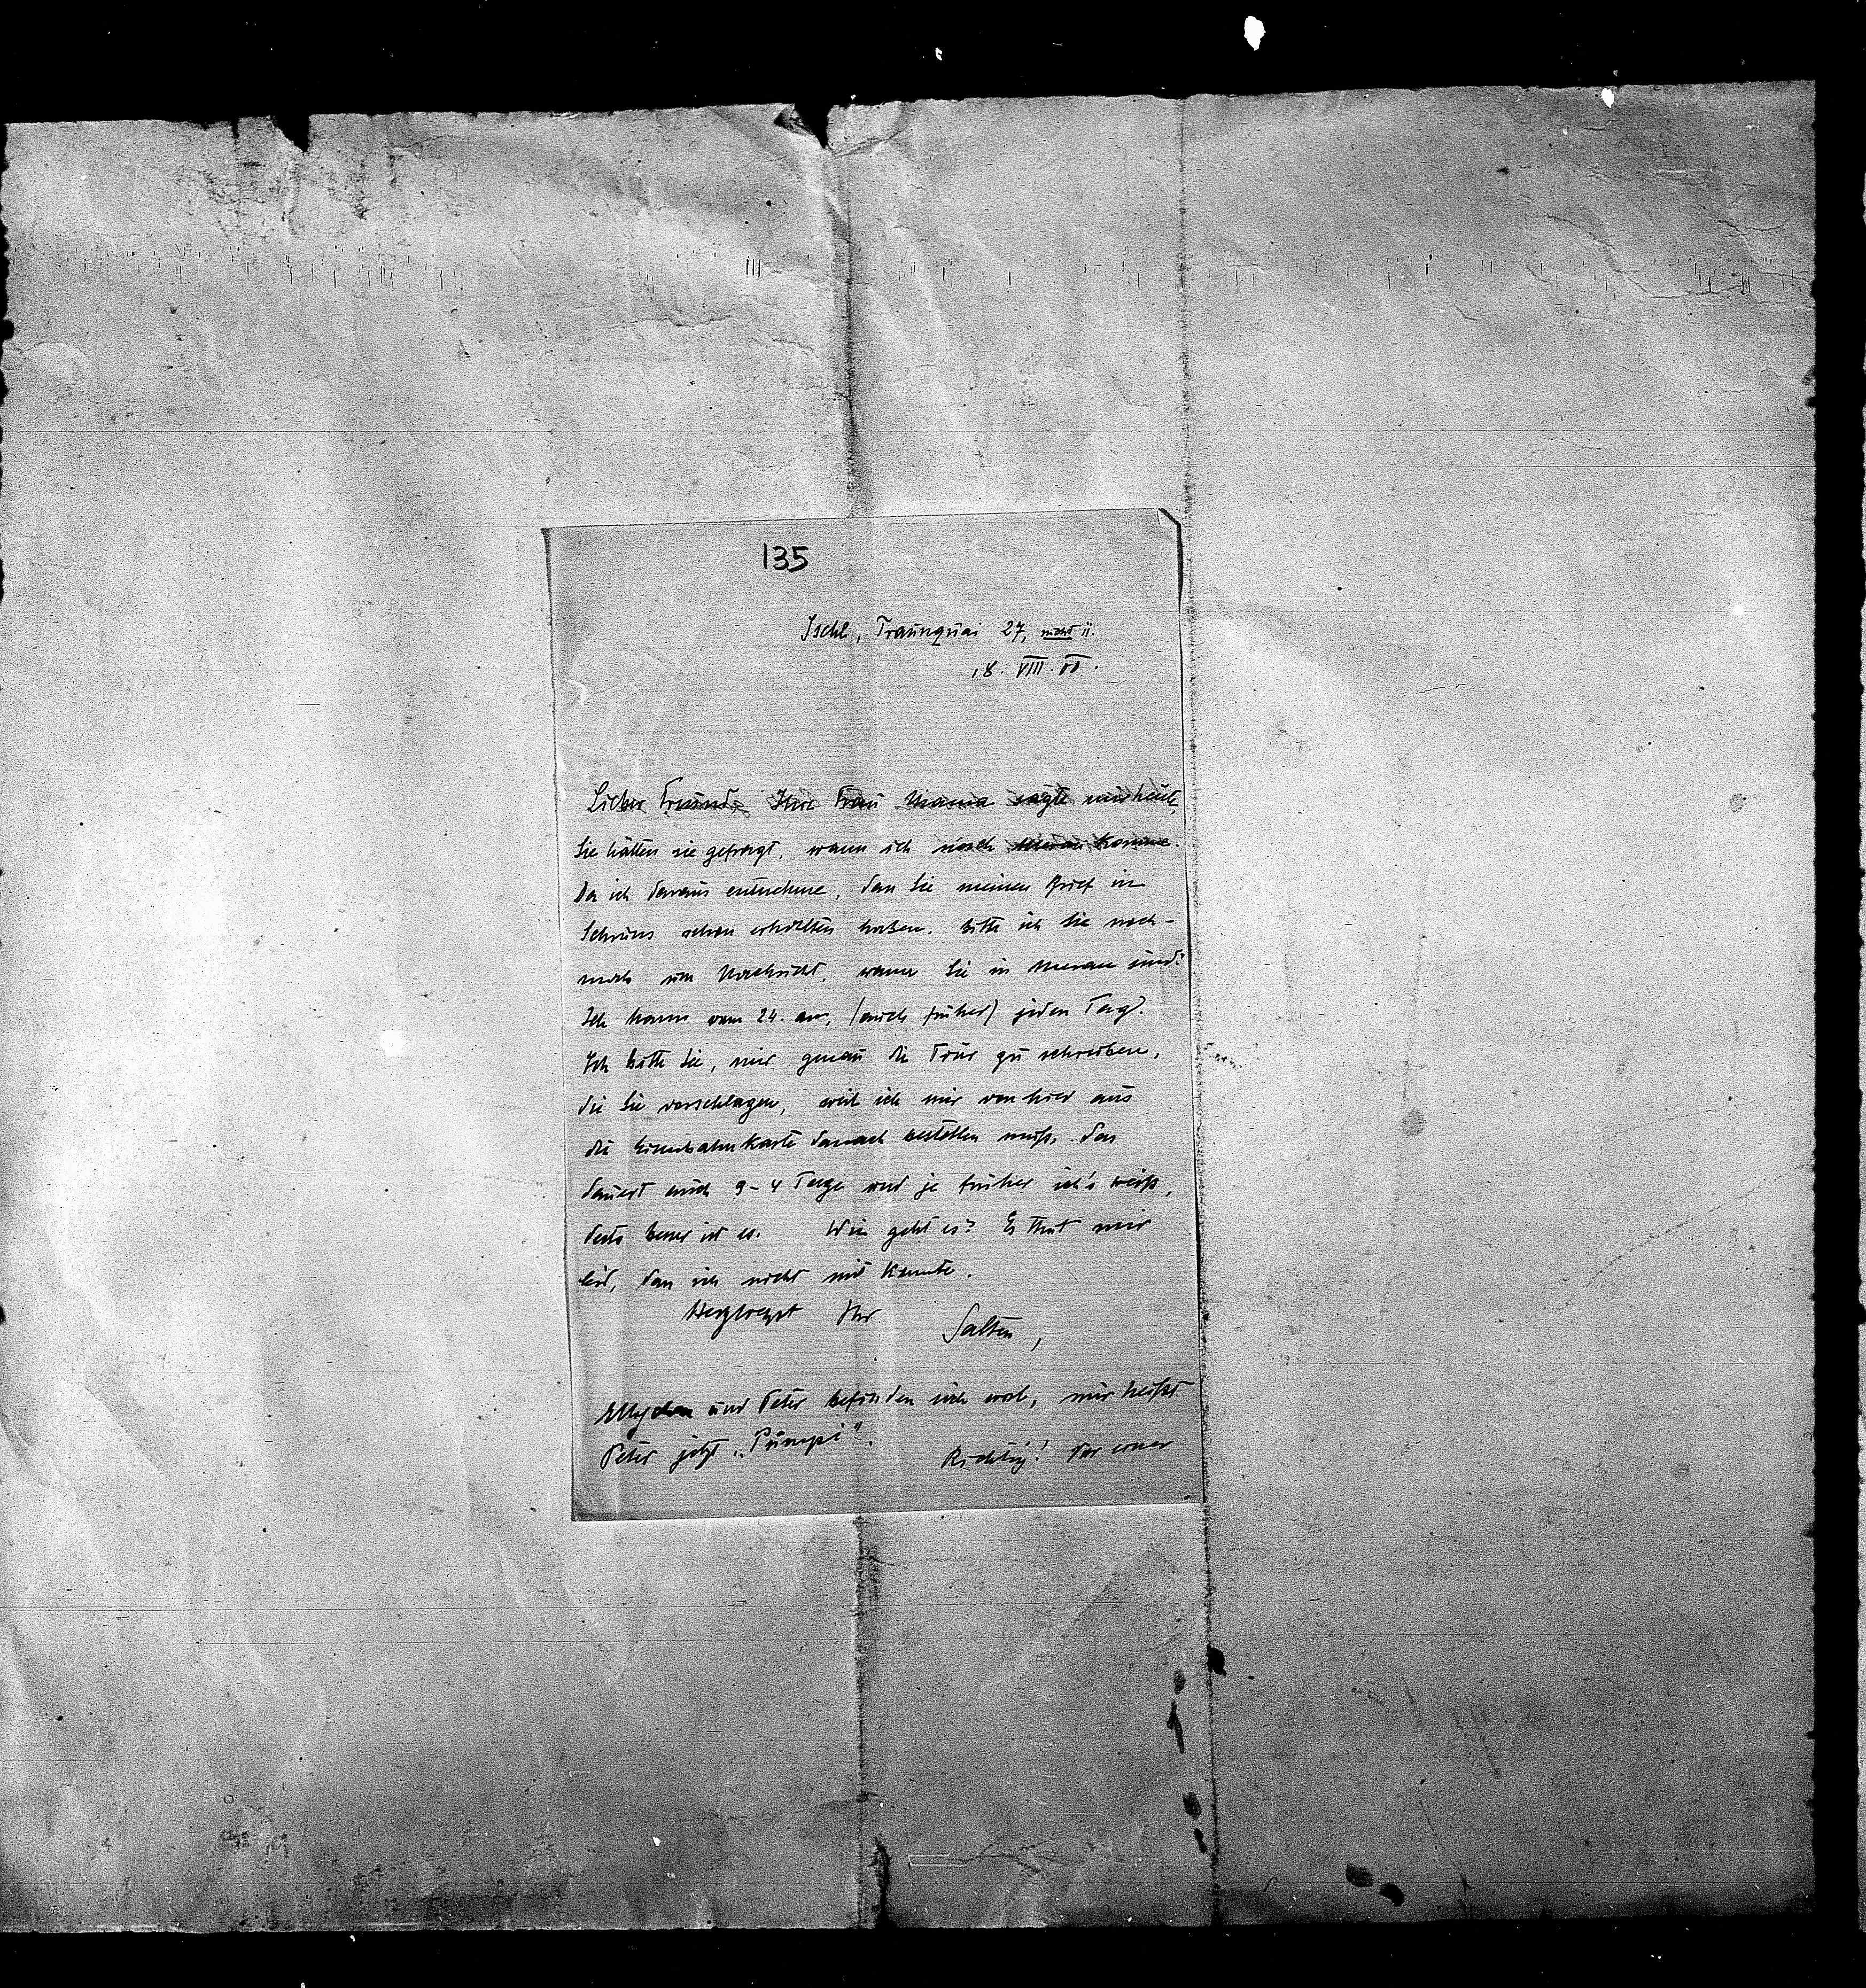 135
Ischl, Traunquai 27, nicht 11.
18. VIII. 00.
Lieber Freund, Ihre Frau Mama sagte mir heute,
Sie hätten sie gefragt, wann ich nach Meran komme.
Da ich daraus entnehme, dass Sie meinen Brief in
Schruns schon erhalten haben, bitte ich Sie noch-
mals um Nachricht, wann Sie in Meran sind?
Ich kann vom 24. an, (auch früher) jeden Tag.
Ich bitte Sie, mir genau die Tour zu schreiben,
die Sie vorschlagen, weil ich mir von hier aus
die Eisenbahnkarte danach bestellen muß. Das
dauert auch 3-4 Tage und je früher ich's weiß,
desto besser ist es. Wie geht es? Es thut mir
leid, dass ich nicht mit konnte.
Herzlichst Ihr Salten,
und Peter befinden sich wol, nur heißt
Peter jetzt „Pumpi". Richtig! Vor einer